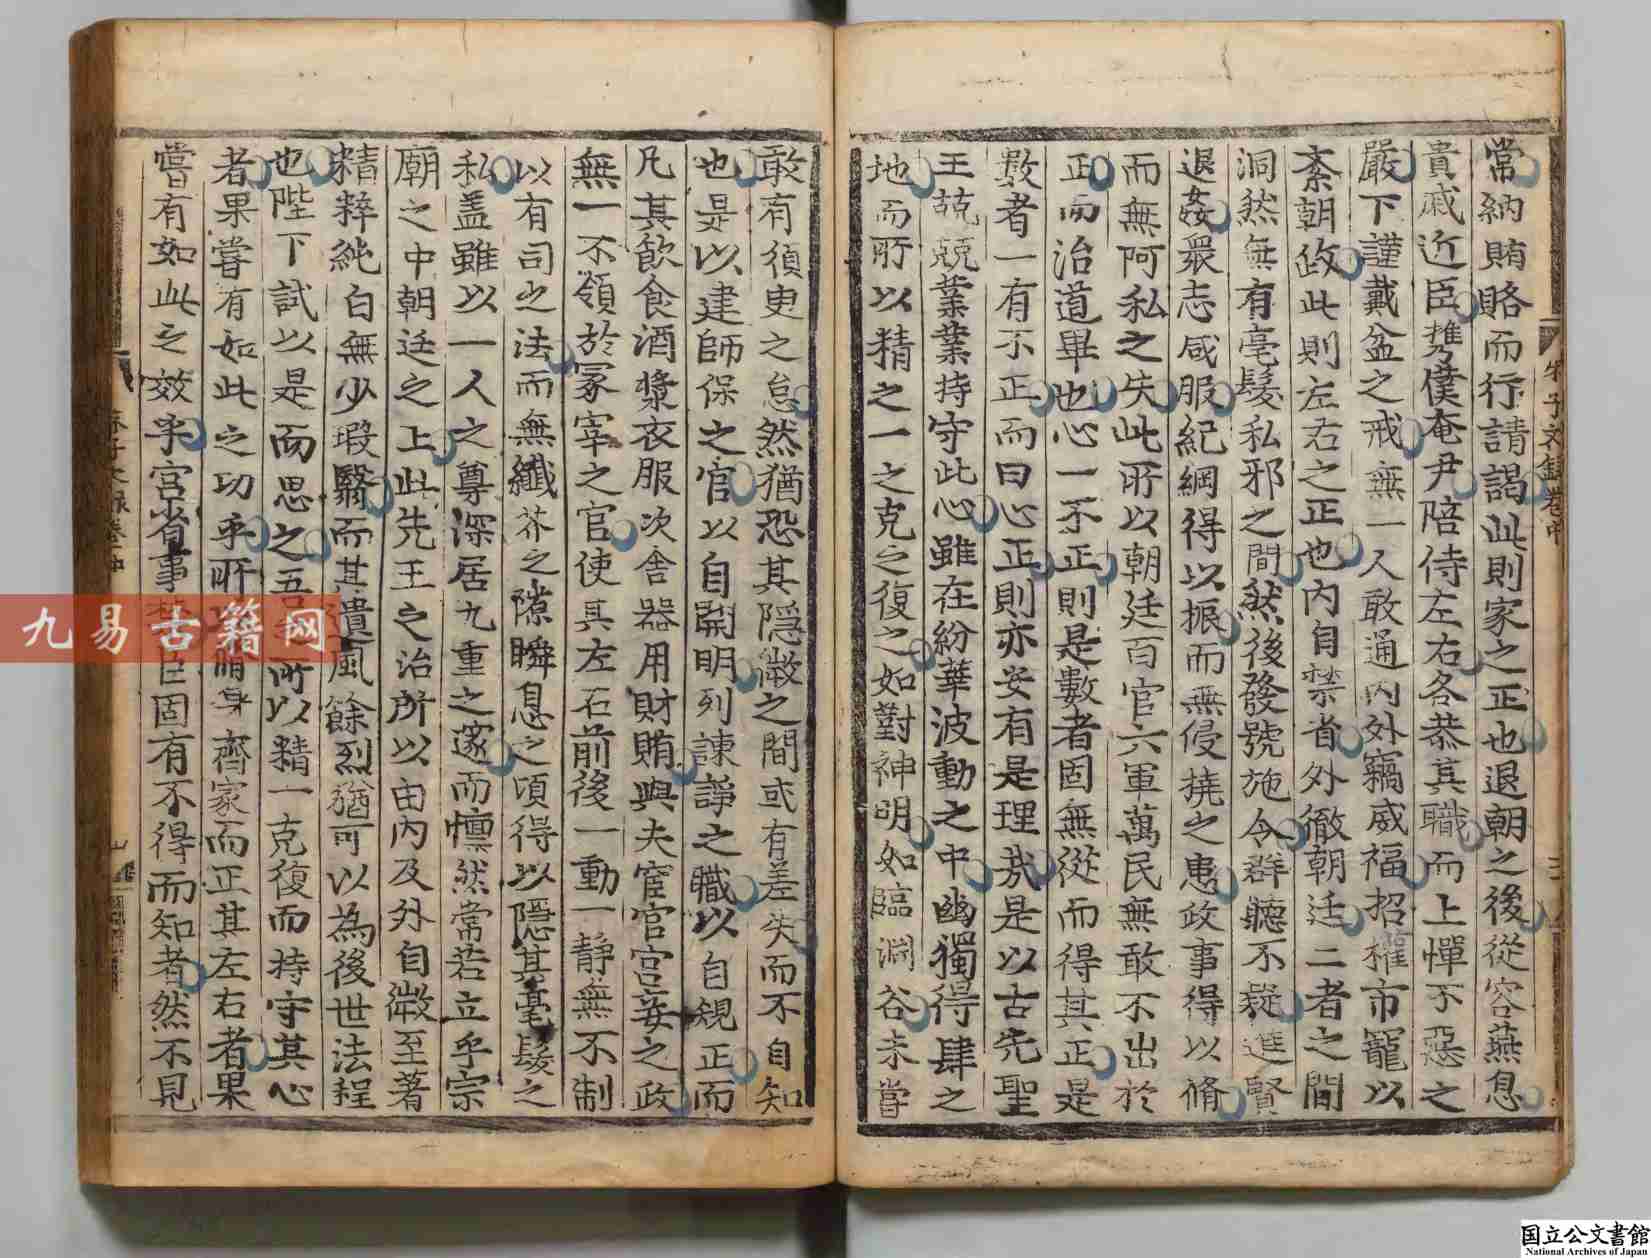 常納賄賂而行請謁此則家之正也退朝之後從容燕息
貴戚近臣攜僕奄尹陪侍左右各恭其職而上憚不惡之
嚴下謹戴盆之戒無一人敢通內外竊威福招權市寵以
紊朝政此則左右之正也內自禁省外徹朝廷二者之間
洞然無有毫髮私邪之間然後發號施令群聽不疑進賢
退姦衆志咸服紀綱得以振而無侵撓之患政事得以脩
而無阿私之失此所以朝廷百官六軍萬民無敢不出於
正而治道畢也心一不正則是數者固無從而得其正是
數者一有不正而曰心正則亦安有是理哉是以古先聖
王兢兢業業持守此心雖在紛華波動之中幽獨得肆之
地而所以精之一之克之復之如對神明如臨淵谷未嘗
敢有須臾之怠然猶恐其隱微之間或有差失而不自知
也是以建師保之官以自開明列諫諍之職以自規正而
凡其飲食酒漿衣服次舍器用財賄與夫宦官宮妾之政
無一不領於冢宰之官使其左右前後一動一靜無不制
以有司之法而無纖芥之隙瞬息之頃得以隱其毫髮之
私盖雖以一人之尊深居九重之邃而懍然常若立乎宗
廟之中朝廷之上此先王之治所以由內及外自微至著
精粹純白無少瑕翳而其遺風餘烈猶可以為後世法程
也陛下試以是而思之吾所以精一克復而持守其心
者果嘗有如此之功乎所以脩身齊家而正其左右者果
嘗有如此之效乎宮省事禁臣固有不得而知者然不見
朱子文錄卷中
朱子文錄卷中
九易古籍网
国立公文書館
National Archives of Japan